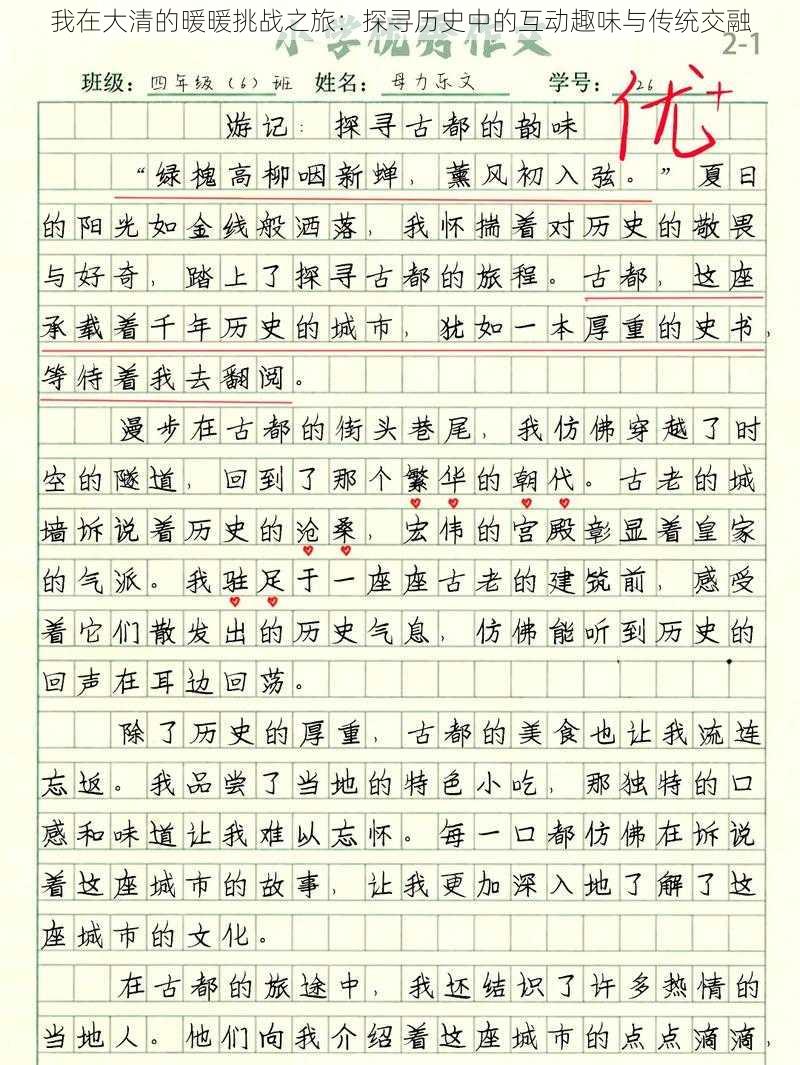 我在大清的暖暖挑战之旅：探寻历史中的互动趣味与传统交融
小学优秀作文
2-1
班级：四年级（6）班 姓名：母力乐文 学号：26
优+
游记：探寻古都的韵味
“绿槐高柳咽新蝉，薰风初入弦。”夏日
的阳光如金线般洒落，我怀揣着对历史的敬畏
与好奇，踏上了探寻古都的旅程。古都，这座
承载着千年历史的城市，犹如一本厚重的史书，
等待着我去翻阅。
漫步在古都的街头巷尾，我仿佛穿越了时
空的隧道，回到了那个繁华的朝代。古老的城
墙诉说着历史的沧桑，宏伟的宫殿彰显着皇家
的气派。我驻足于一座座古老的建筑前，感受
着它们散发出的历史气息，仿佛能听到历史的
回声在耳边回荡。
除了历史的厚重，古都的美食也让我流连
忘返。我品尝了当地的特色小吃，那独特的口
感和味道让我难以忘怀。每一口都仿佛在诉说
着这座城市的故事，让我更加深入地了解了这
座城市的文化。
在古都的旅途中，我还结识了许多热情的
当地人。他们向我介绍着这座城市的点点滴滴，